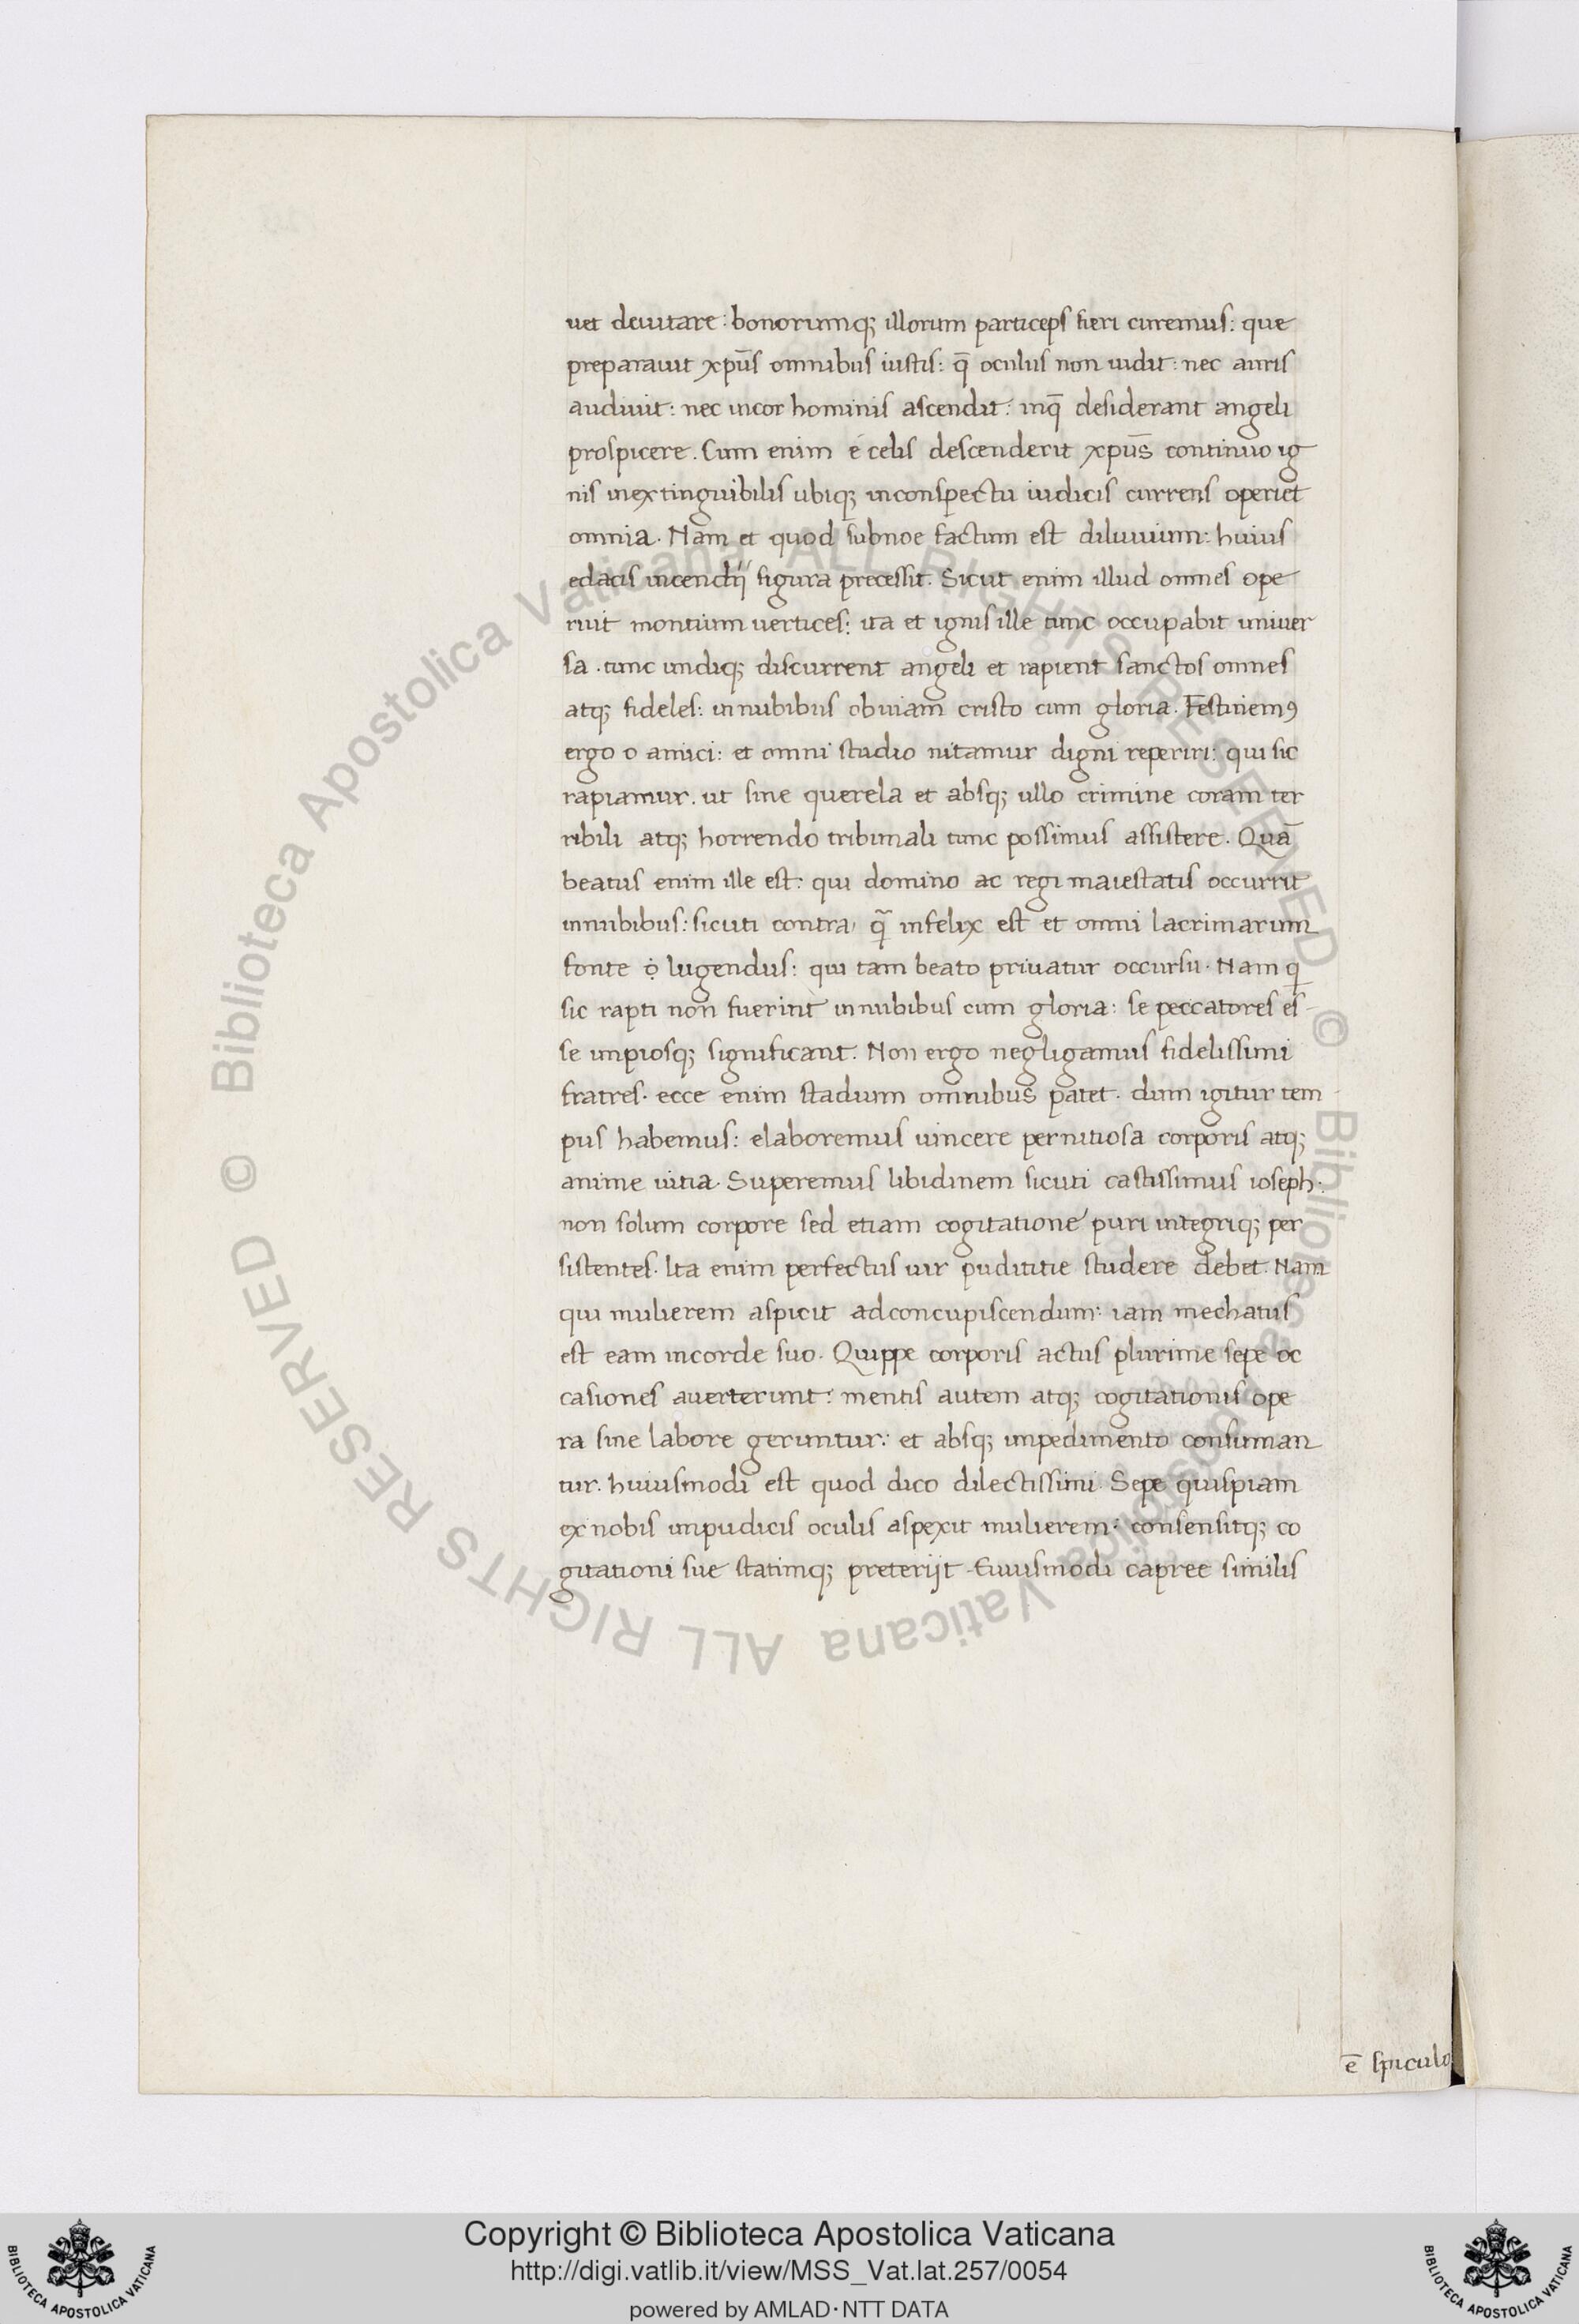 uet deuitare: bonorumq; illorum particeps fieri curemus: que
preparauit xp̄us omnibus iustis: q̄ oculus non uidit: nec auris
audiuit: nec incor hominis ascendit: inq̄ desiderant angeli
prospicere. Cum enim é celis descenderit xpūs continuo ig
nis inextinguibilis ubiq; inconspectu iudicis currens operiet
omnia. Nam et quod subnoe factum est diluuium: huius
edacis incendij figura precessit. Sicut enim illud omnes ope
ruit montium uertices: ita et ignis ille tunc occupabit univer
sa. tunc undiq; discurrent angeli et rapient sanctos omnes
atq; fideles: innubibus obuiam cristo cum gloria. Festinemꝰ
ergo o amici: et omni studio nitamur digni reperiri: qui sic
rapiamur. ut sine querela et absq; ullo crimine coram ter
ribili atq; horrendo tribunali tunc possimus assistere. Quā
beatus enim ille est: qui domino ac regi maiestatis occurrit
innubibus: sicuti contra, q̃ infelix est et omni lacrimarum
fonte ọ lugendus: qui tam beato priuatur occursu. Nam q
sic rapti non fuerint innubibus cum gloria: se peccatores es
se impiosq; significant. Non ergo negligamus fidelissimi
fratres. ecce enim stadium omnibus patet. dum igitur tem
pus habemus: elaboremus uincere pernitiosa corporis atq;
anime uitia. Superemus libidinem sicuti castissimus ioseph:
non solum corpore sed etiam cogitatione puri integriq; per
sistentes. Ita enim perfectus uir pudititie studere debet. Nam
qui mulierem aspicit adconcupiscendum: iam mechatus
est eam incorde suo. Quippe corporis actus plurime sepe oc
casiones averterunt: mentis autem atq; cogitationis ope
ra sine labore geruntur: et absq; impedimento consuman
tur. huiusmodi est quod dico dilectissimi. Sepe quispiam
ex nobis impudicis oculis aspexit mulierem: consensitq; co
gitationi sue statimq; preterijt. Eiuusmodi capree similis
ē spiculo
© Biblioteca Apostolica Vaticana ALL RIGHTS RESERVED © Biblioteca Apostolica Vaticana ALL RIGHTS RESERVED
Copyright © Biblioteca Apostolica Vaticana
http://digi.vatlib.it/view/MSS_Vat.lat.257/0054
powered by AMLAD·NTT DATA
BIBLIOTECA APOSTOLICA VATICANA
BIBLIOTECA APOSTOLICA VATICANA